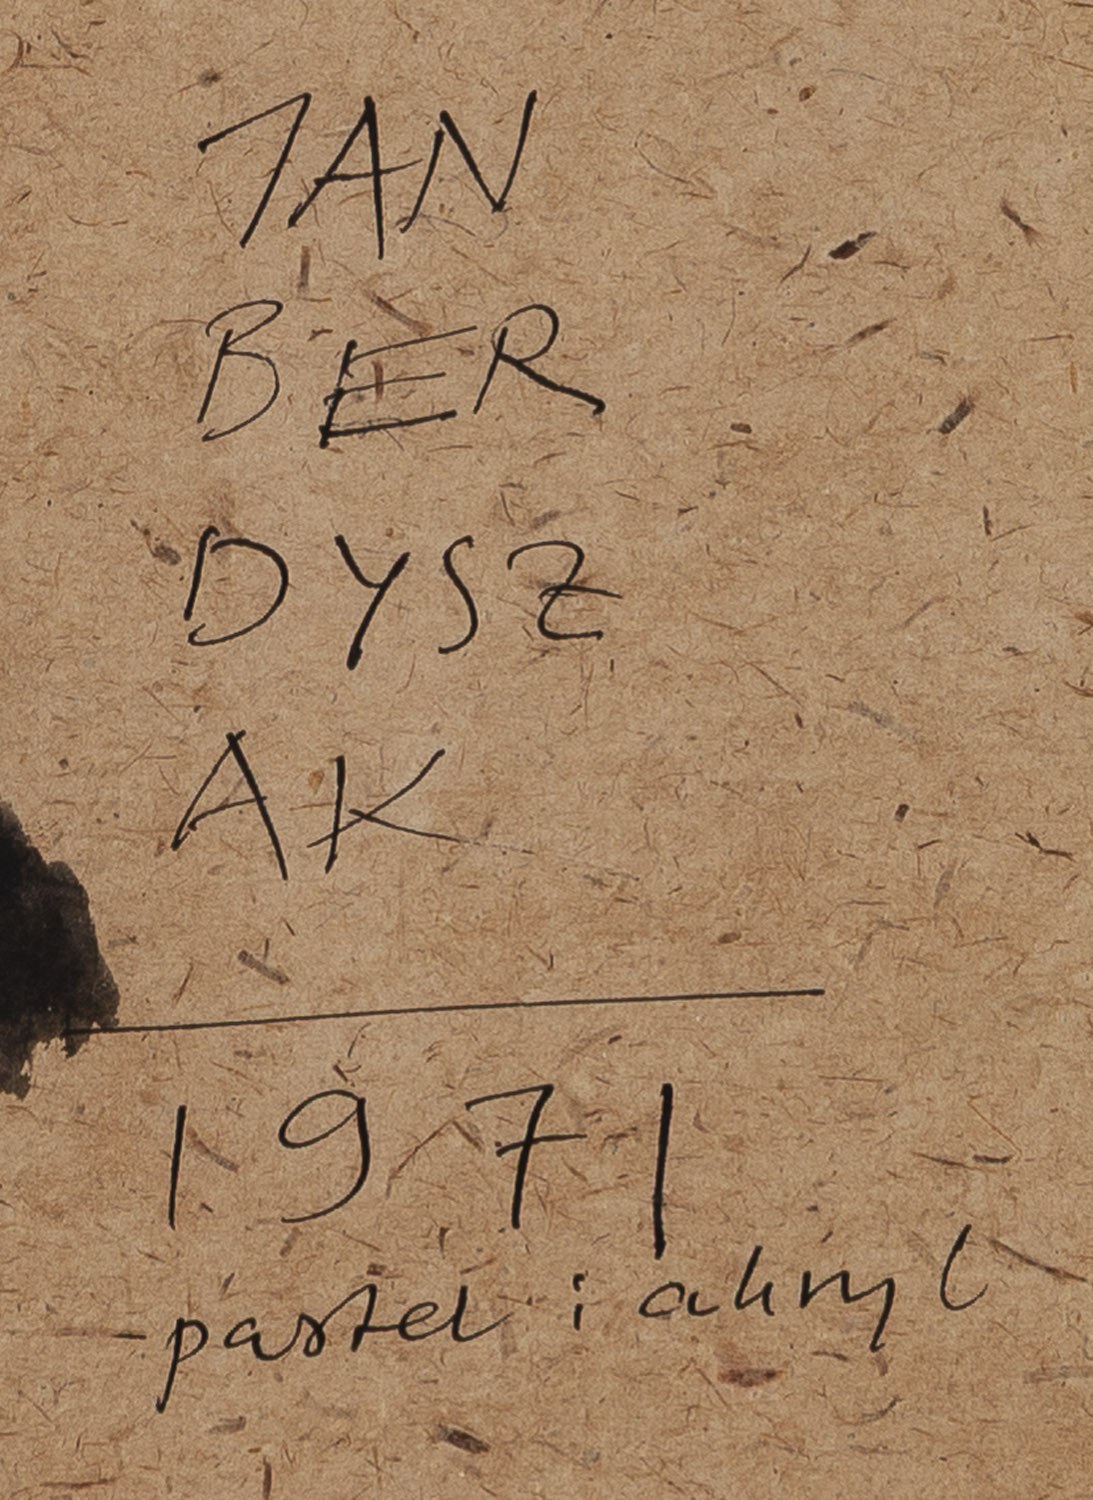 JAN
BER
DYSZ
AK
1971
pastel i akryl